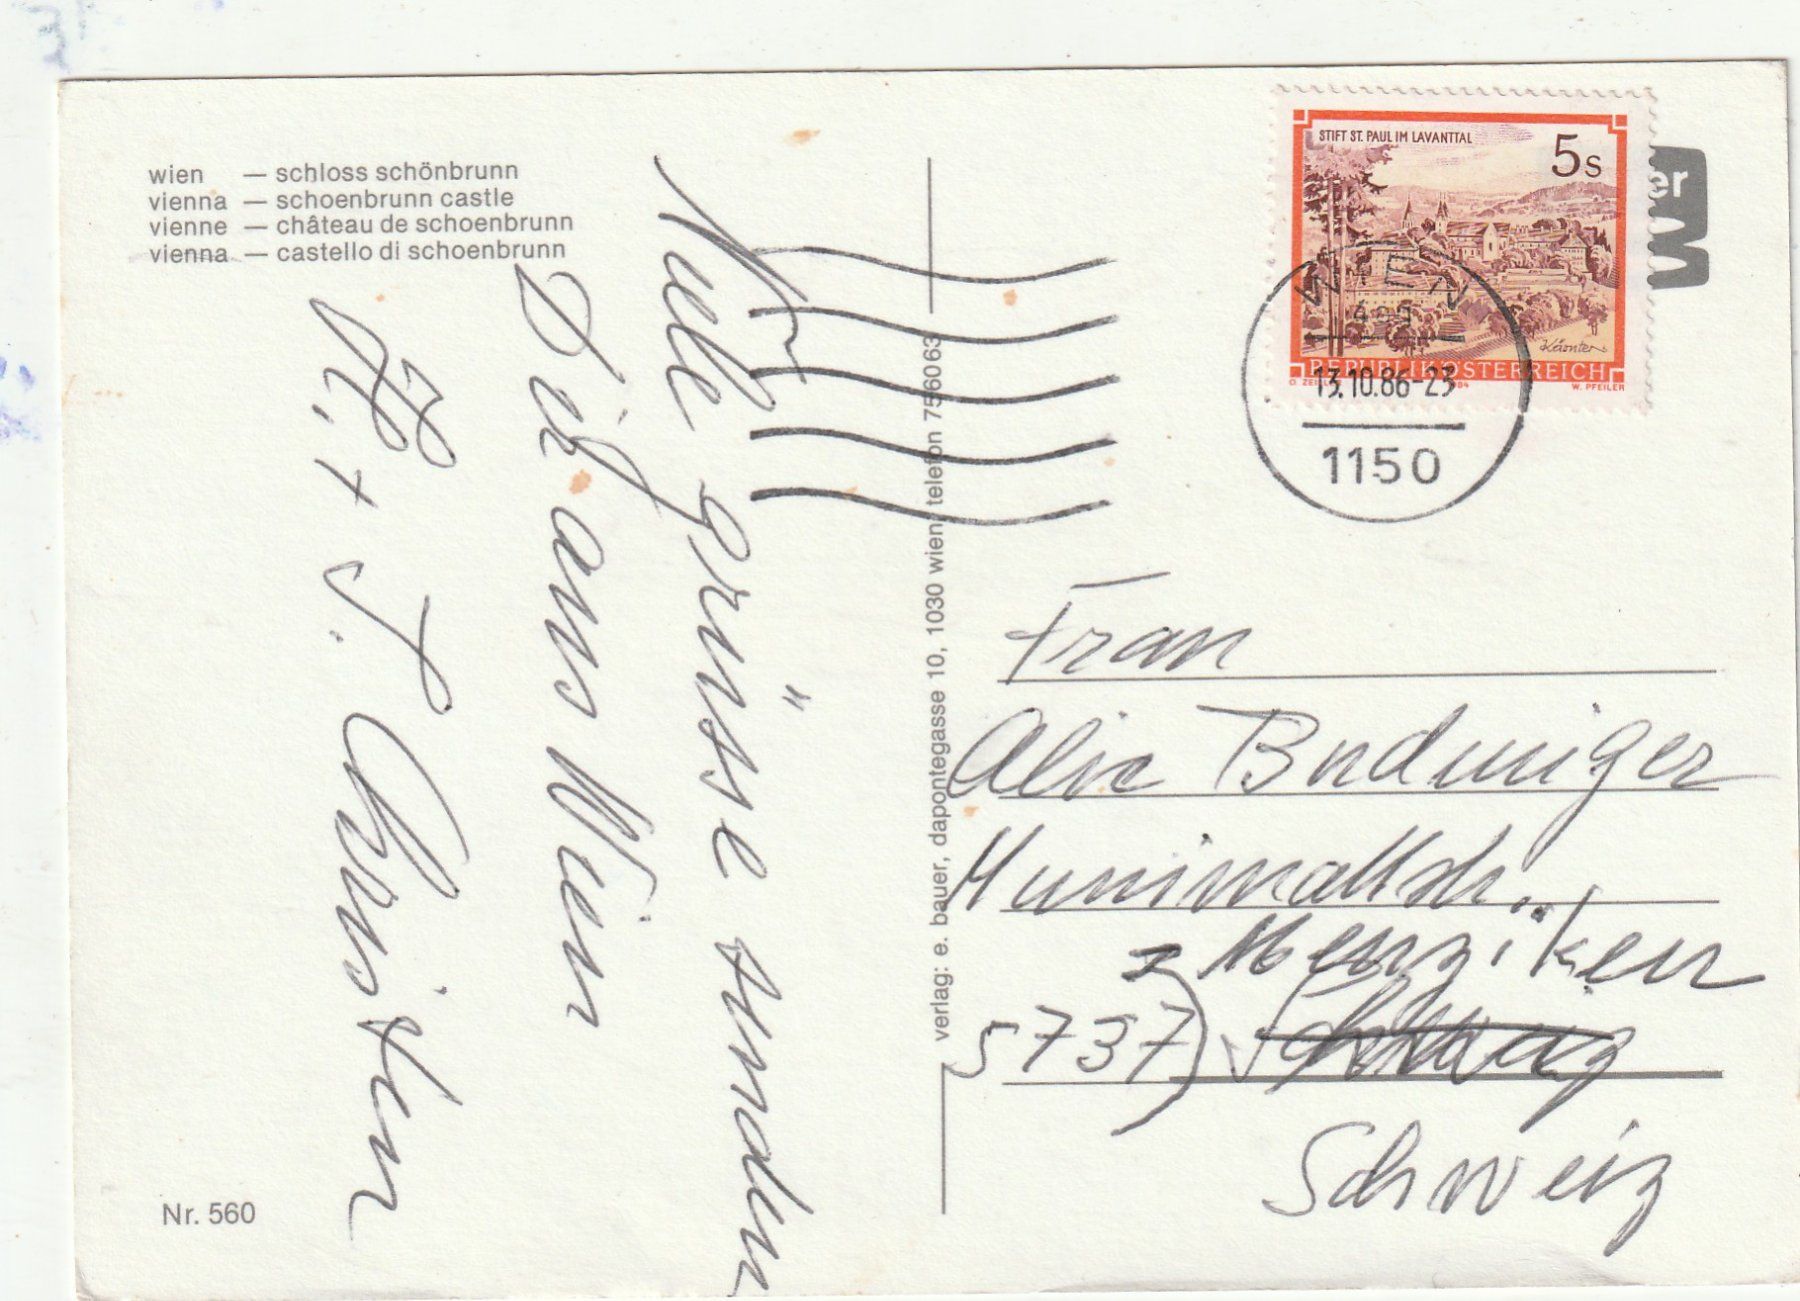 wien — schloss schönbrunn
vienna — schoenbrunn castle
vienne — château de schoenbrunn
vienna — castello di schoenbrunn
Viele grüsse senden
Dir aus Wien
H. + S. Christen
Nr. 560
verlag: e. bauer, dapontegasse 10, 1030 wien, telefon 756063
STIFT ST. PAUL IM LAVANTTAL
5s
Kärnten
REPUBLIK ÖSTERREICH
W. PFEILER
er
WIEN
13.10.86-23
1150
Frau
Alice Budmiger
Menziken
5737
Schweiz